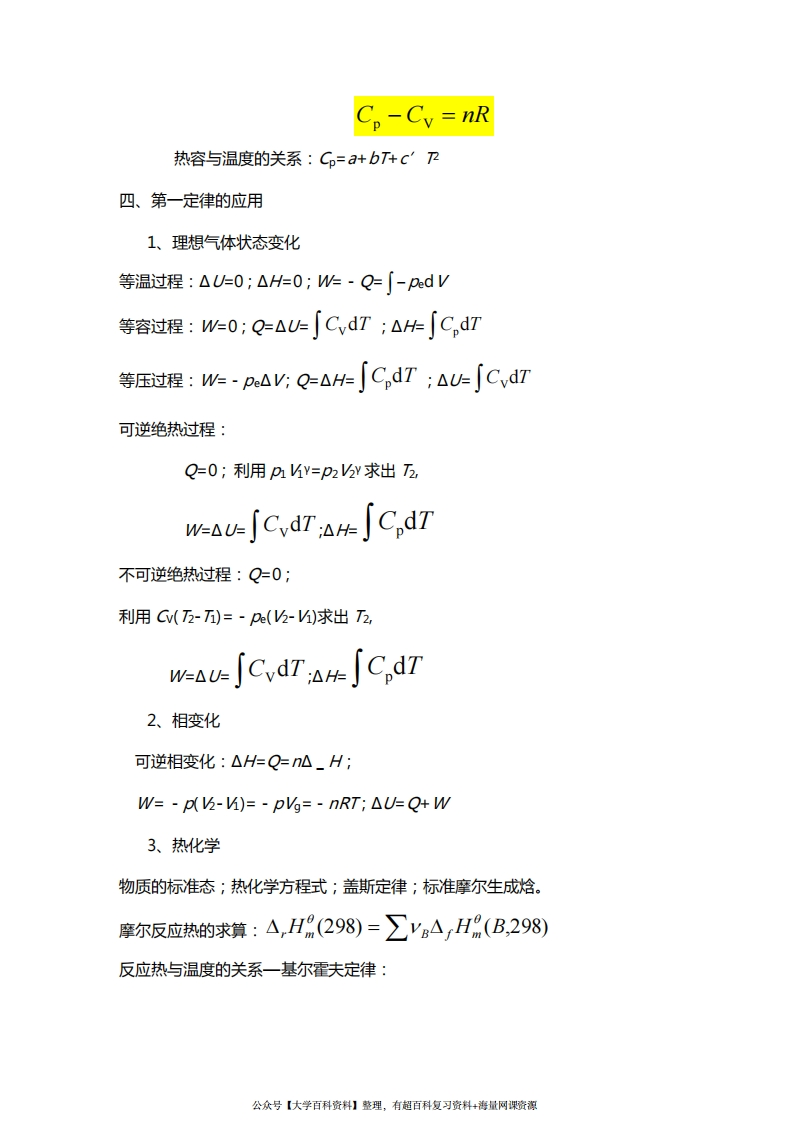 Cp − CV = nR
热容与温度的关系：Cp=a+bT+c′ T²
四、第一定律的应用
1、理想气体状态变化
等温过程：ΔU=0；ΔH=0；W=－Q=∫−pedV
等容过程：W=0；Q=ΔU=∫CVdT ；ΔH=∫CpdT
等压过程：W=－peΔV；Q=ΔH=∫CpdT ；ΔU=∫CVdT
可逆绝热过程：
Q=0；利用 p₁V₁ᵞ=p₂V₂ᵞ 求出 T₂,
W=ΔU=∫CVdT;ΔH=∫CpdT
不可逆绝热过程：Q=0；
利用 CV(T₂-T₁)=－pe(V₂-V₁)求出 T₂,
W=ΔU=∫CVdT;ΔH=∫CpdT
2、相变化
可逆相变化：ΔH=Q=nΔ_H；
W=－p(V₂-V₁)=－pVg=－nRT；ΔU=Q+W
3、热化学
物质的标准态；热化学方程式；盖斯定律；标准摩尔生成焓。
摩尔反应热的求算：ΔrHmθ(298) = ∑νBΔfHmθ(B,298)
反应热与温度的关系—基尔霍夫定律：
公众号【大学百科资料】整理，有超百科复习资料+海量网课资源